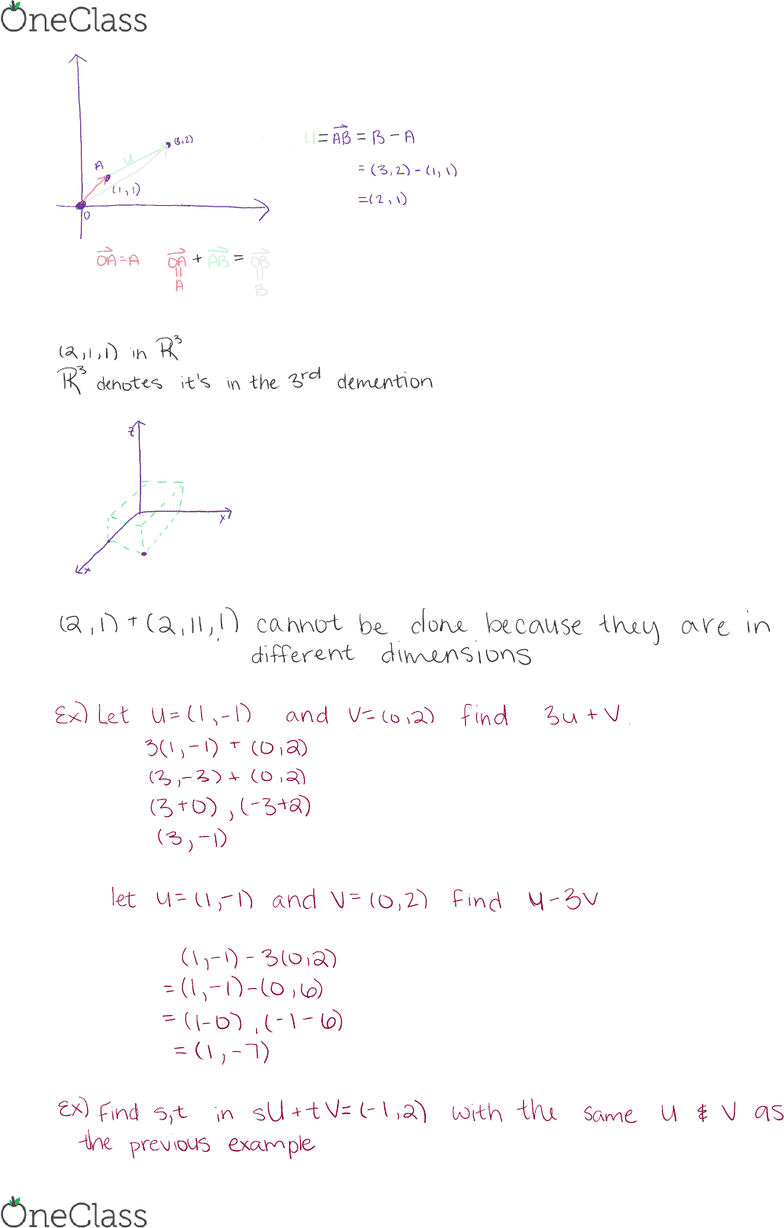 OneClass
(3,2)
A
u
(1,1)
O
U = AB = B - A
= (3,2) - (1,1)
= (2,1)
OA = A OA + AB = OB
A
B
(2,1,1) in ℝ³
ℝ³ denotes it's in the 3rd demention
z
y
x
(2,1) + (2,11,1) cannot be done because they are in
different dimensions
Ex) Let u=(1,-1) and v=(0,2) find 3u+v.
3(1,-1) + (0,2)
(3,-3) + (0,2)
(3+0), (-3+2)
(3,-1)
let u=(1,-1) and v=(0,2) find u-3v
(1,-1) - 3(0,2)
= (1,-1) - (0,6)
= (1-0), (-1-6)
= (1,-7)
Ex) Find s,t in sU+tV=(-1,2) with the same u & v as
the previous example
OneClass